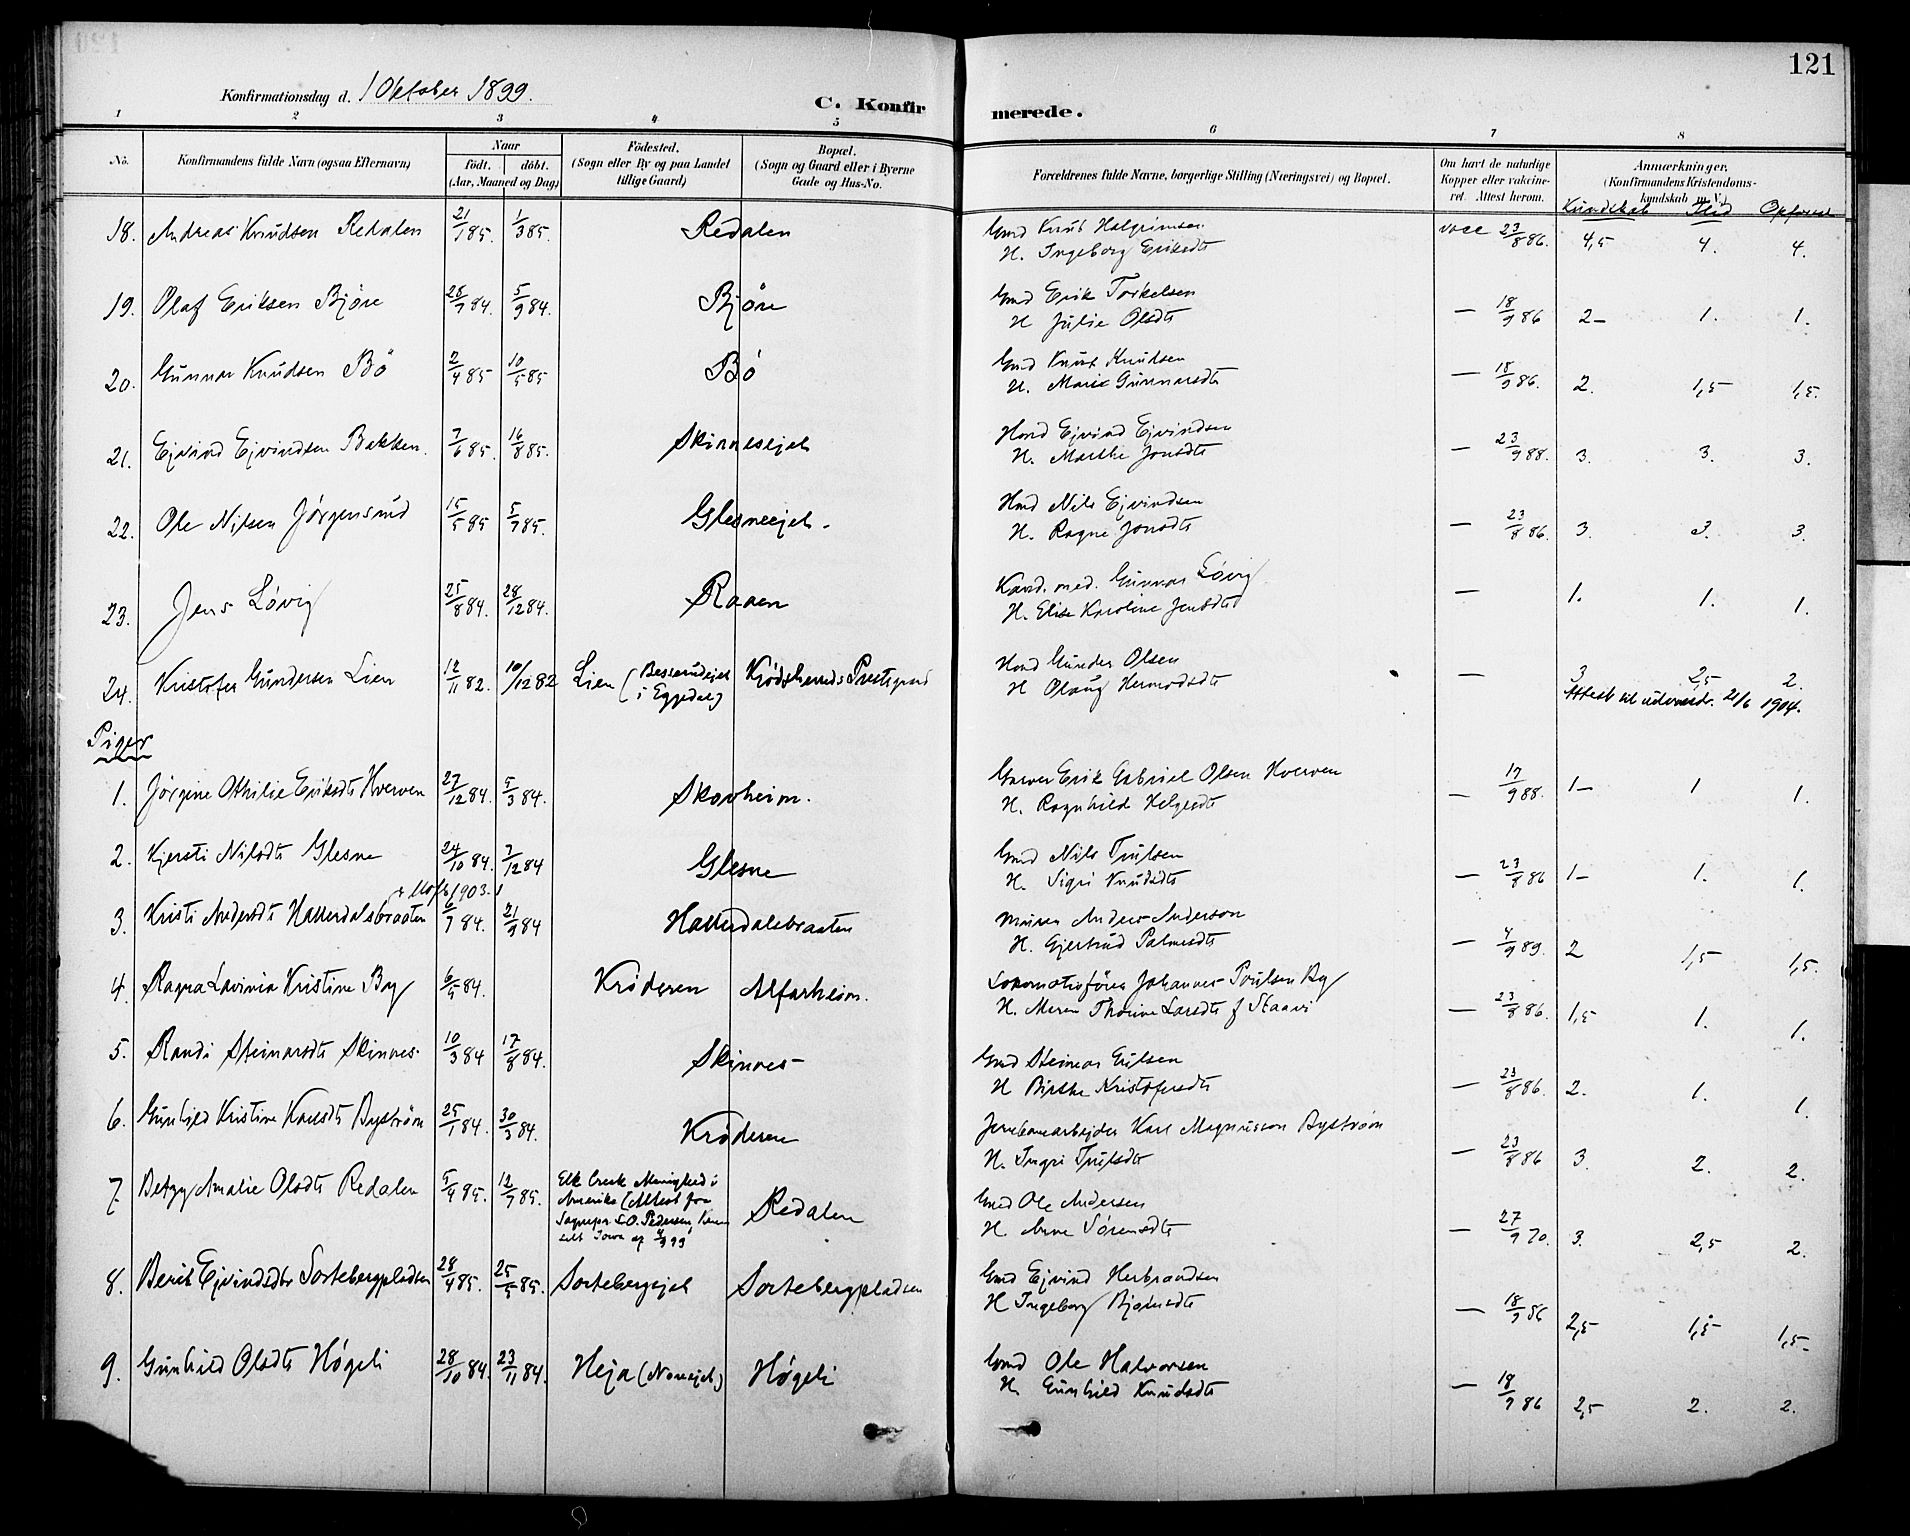 121
Konfirmationsdag d. 1 Oktober 1899.
C. Konfirmerede.
1 2 3 4 5 6 7 8
No. Konfirmandens fulde Navn (ogsaa Efternavn) Naar født. døbt. (Aar, Maaned og Dag) Födested. (Sogn eller By og paa Landet tillige Gaard) Bopæl. (Sogn og Gaard eller i Byerne Gade og Hus-No. Forældrenes fulde Navne, borgerlige Stilling (Næringsvei) og Bopæl. Om havt de naturlige Kopper eller vakcineret. Attest herom. Anmærkninger. (Konfirmandens Kristendomskundskab m. V.)
Kundskab Flid Opførsel
18. Andreas Knudsen Redalen 21/1 85. 1/3 85. Redalen Gmd Knut Halgrimsen vacc 23/8 86. 4,5 4. 4.
H. Ingeborg Eriksdt
19. Olaf Eriksen Björe 28/7 84. 5/9 84. Björe Gmd Erik Torkelsen — 18/9 86 2- 1. 1.
H Julie Olsdt
20. Gunnar Knudsen Bö 2/4 85 10/5 85 Bö Gmd Knut Knudsen — 18/9 86. 2. 1,5 1,5.
H. Marie Gunnarsdt
21. Ejvind Ejvindsen Bakken. 7/6 85. 16/8 85. Skinnesejet Hmd Ejvind Ejvindsen — 23/9 88. 3. 3. 3.
H. Marthe Jonsdt
22. Ole Nilsen Jörgensrud 15/5 85 5/7 85. Glesneejet. Hmd Nils Ejvindsen — 23/8 86. 3. 3. 3.
H. Ragne Jonsdt
23. Jens Lövig 25/8 84. 28/12 84. Raaen Kand. med. Gunnar Lövig — 1. 1. 1.
H. Elise Karoline Jensdt
24. Kristofer Gundersen Lien 12/11 82. 10/12 82 Lien (Besserudejet i Eggedal) Krödsherreds Prestegjeld Hmd Gunder Olsen — 3 2,5 2.
H Olaug Hermodsdt Attest til udvandr. 21/6 1904.
Piger
1. Jörgine Othilie Eriksdt Hverven 27/12 84. 5/3 84. Skovheim. Garver Erik Gabriel Olsen Hverven — 17/9 88. 1- 1 1.
H. Ragnhild Helgesdt
2. Kjersti Nilsdt Glesne 24/10 84. 7/12 84 Glesne Gmd Nils Trulsen — 23/8 86 1- 1. 1.
H. Sigri Knudsdt
3. Kristi Andersdt Hallerdalsbraaten 84. 21/9 84 Hallerdalsbraaten Murer Anders Anderson — 4/9 89. 2 1,5 1,5.
H. Gjertrud Palmesdt
4. Ragna Lavinia Kristine By 6/5 84. Kröderen Alfarheim. Lokomotivförer Johannes Poulsen By — 23/8 86. 1,5 1. 1.
H. Maren Thorine Larsdt f Staavi
5. Randi Steinarsdt Skinnes. 10/3 84 17/8 84. Skinnes Gmd Steinar Guulsen — 23/8 86. 2. 1. 1.
H Birthe Kristofersdt
6. Gunhild Kristine Karlsdt Byström 25/1 84. 30/3 84. Kröderen Jernbanearbejder Karl Magnusson Byström — 23/8 86 3. 2. 2.
H. Ingri Trulsdt
7. Betzy Amalie Olsdt Redalen 5/4 85. 12/7 85. Elk Creek Menighed i Amerika (Attest fra Sognepr. S.O. Pedersen, Iowa af 99) Redalen Gmd Ole Andersen — 27/9 70. 3. 2,5 2.
H. Anne Sörensdt
8. Berit Ejvindsdtr Sortebergpladsen 28/4 85. 25/5 85. Sortebergejet Sortebergpladsen Gmd Ejvind Herbrandsen — 18/9 86 2,5 1,5 1,5-
H Ingeborg Bjørnsdt
9. Gunhild Olsdt Høgeli 28/10 84. 23/11 84. Heja (Noreejet) Høgeli Gmd Ole Halvorsen — 18/9 86 2,5 2. 2.
H. Gunhild Knudsdt